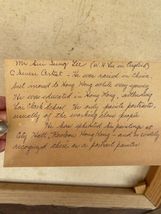 Mr Siu Sung Lee (in English)
Chinese Artist - He was raised in China,
but moved to Hong Kong while very young.
He was educated in Hong Kong, attending
School. He only paints portraits,
usually of the working class people.
He has exhibited his paintings at
City Hall, Kowloon Hong Kong - and is widely
recognized there as a portrait painter.